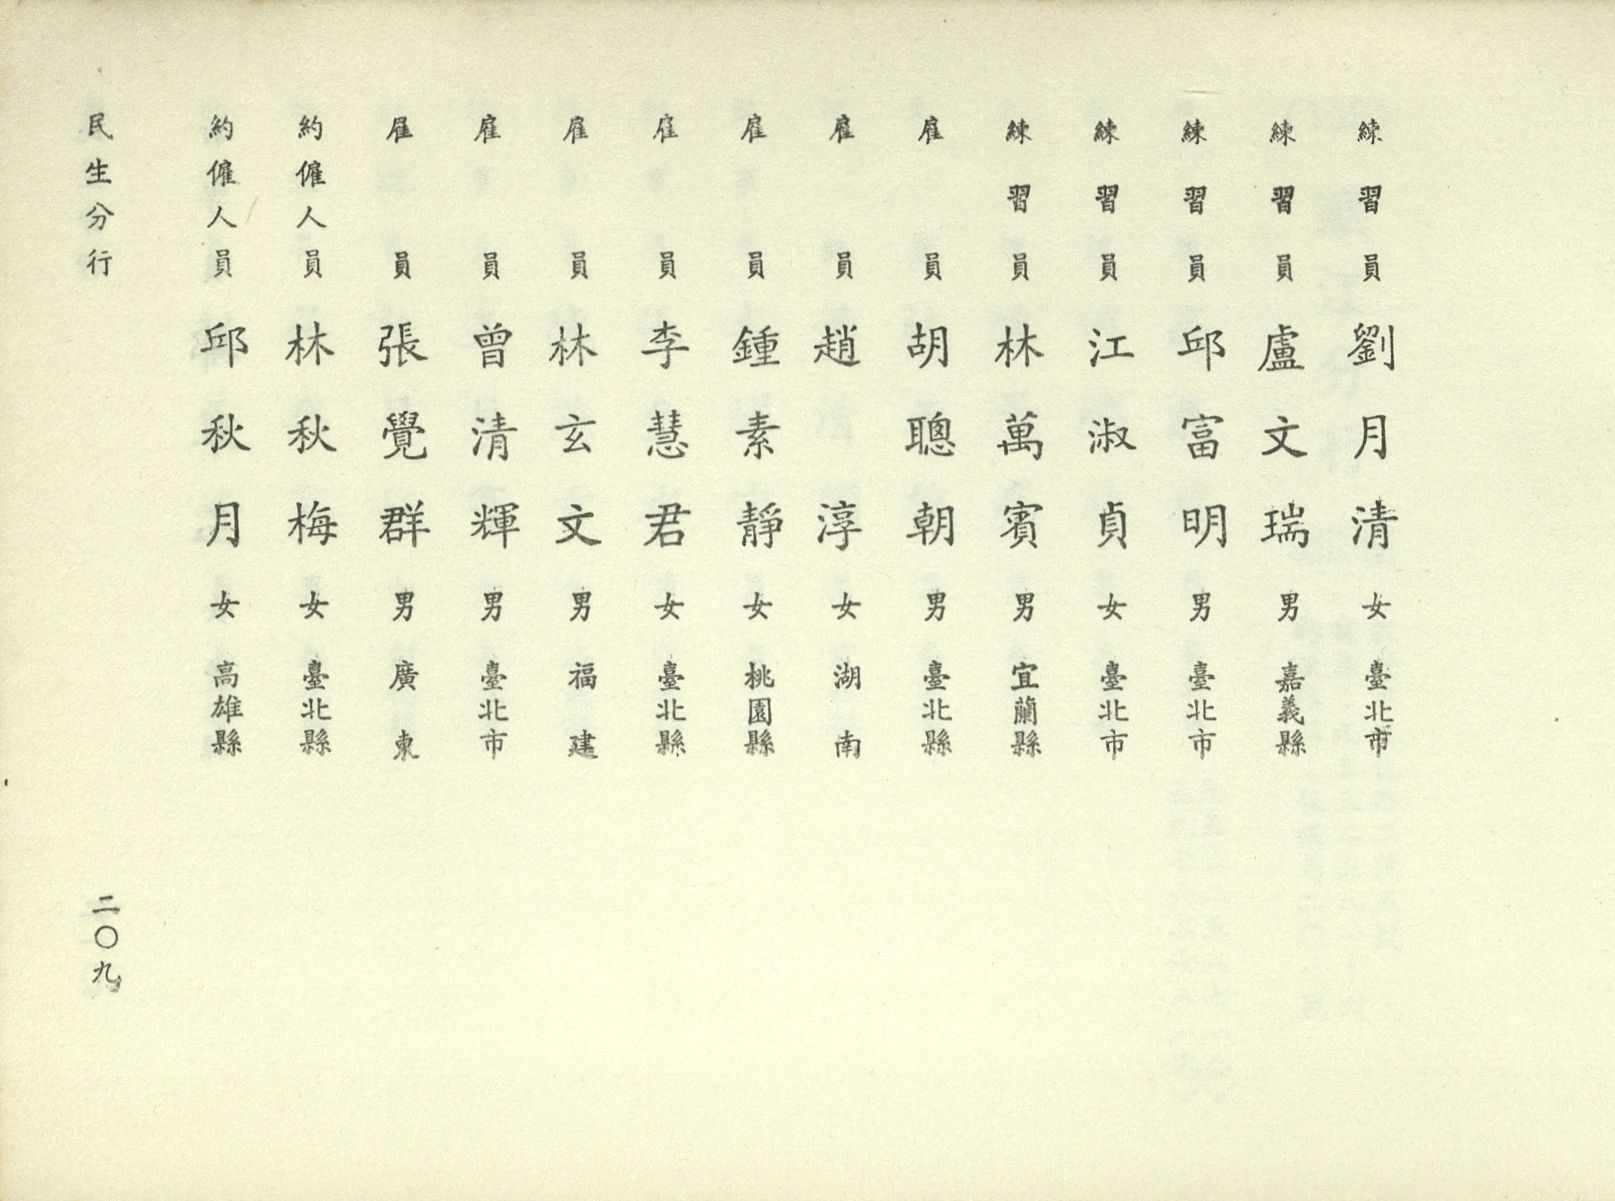 練習員 劉月清 女 臺北市
練習員 盧文瑞 男 嘉義縣
練習員 邱富明 男 臺北市
練習員 江淑貞 女 臺北市
練習員 林萬賓 男 宜蘭縣
雇員 胡聰朝 男 臺北縣
雇員 趙淳 女 湖南
雇員 鍾素靜 女 桃園縣
雇員 李慧君 女 臺北縣
雇員 林玄文 男 福建
雇員 曾清輝 男 臺北市
雇員 張覺群 男 廣東
約僱人員 林秋梅 女 臺北縣
約僱人員 邱秋月 女 高雄縣
民生分行
二〇九